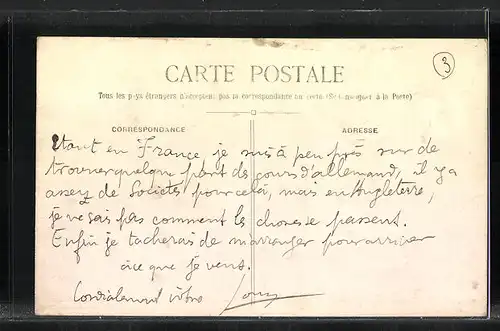 3
CARTE POSTALE
Tous les pays étrangers n'acceptent pas la correspondance au recto (Se renseigner à la Poste)
CORRESPONDANCE
ADRESSE
étant en France je suis à peu près sur de
trouver quelque part des cours d'allemand, il y a
assez de Sociétés pour cela, mais en Angleterre,
je ne sais pas comment les choses se passent.
Enfin je tacherais de m'arranger pour arriver
à ce que je veux.
Cordialement vôtre